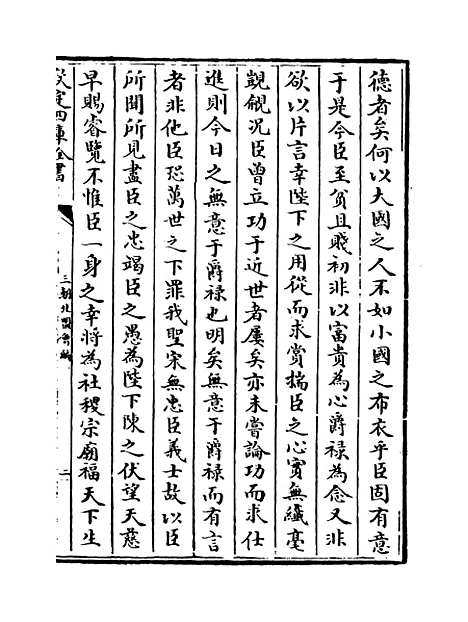 德者矣何以大國之人不如小國之布衣乎臣固有意
于是今臣至貧且賤初非以富貴為心爵祿為念又非
欲以片言幸陛下之用從而求賞揣臣之心實無纎毫
覬覦况臣曽立功于近世者屢矣亦未嘗論功而求仕
進則今日之無意于爵祿也明矣無意于爵祿而有言
者非他臣恐萬世之下罪我聖宋無忠臣義士故以臣
所聞所見盡臣之忠竭臣之愚為陛下陳之伏望天慈
早賜睿覽不惟臣一身之幸將為社稷宗廟福天下生
欽定四庫全書
三朝北盟會編
二